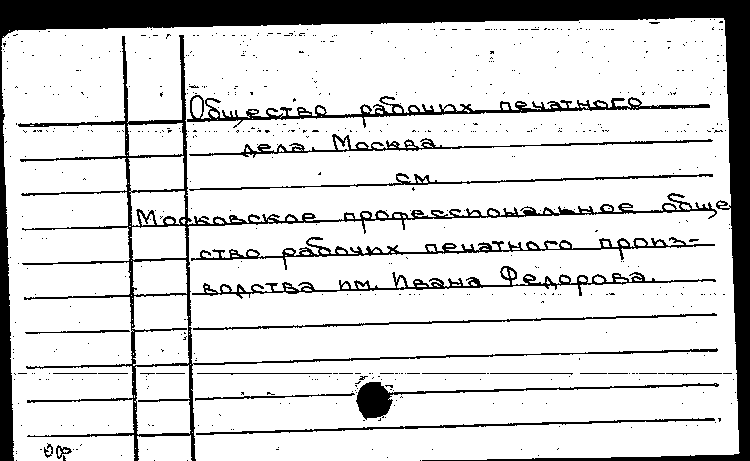 Общество рабочих печатного
дела. Москва.
см.
Московское профессиональное обще
ство рабочих печатного произ-
водства им. Ивана Федорова.